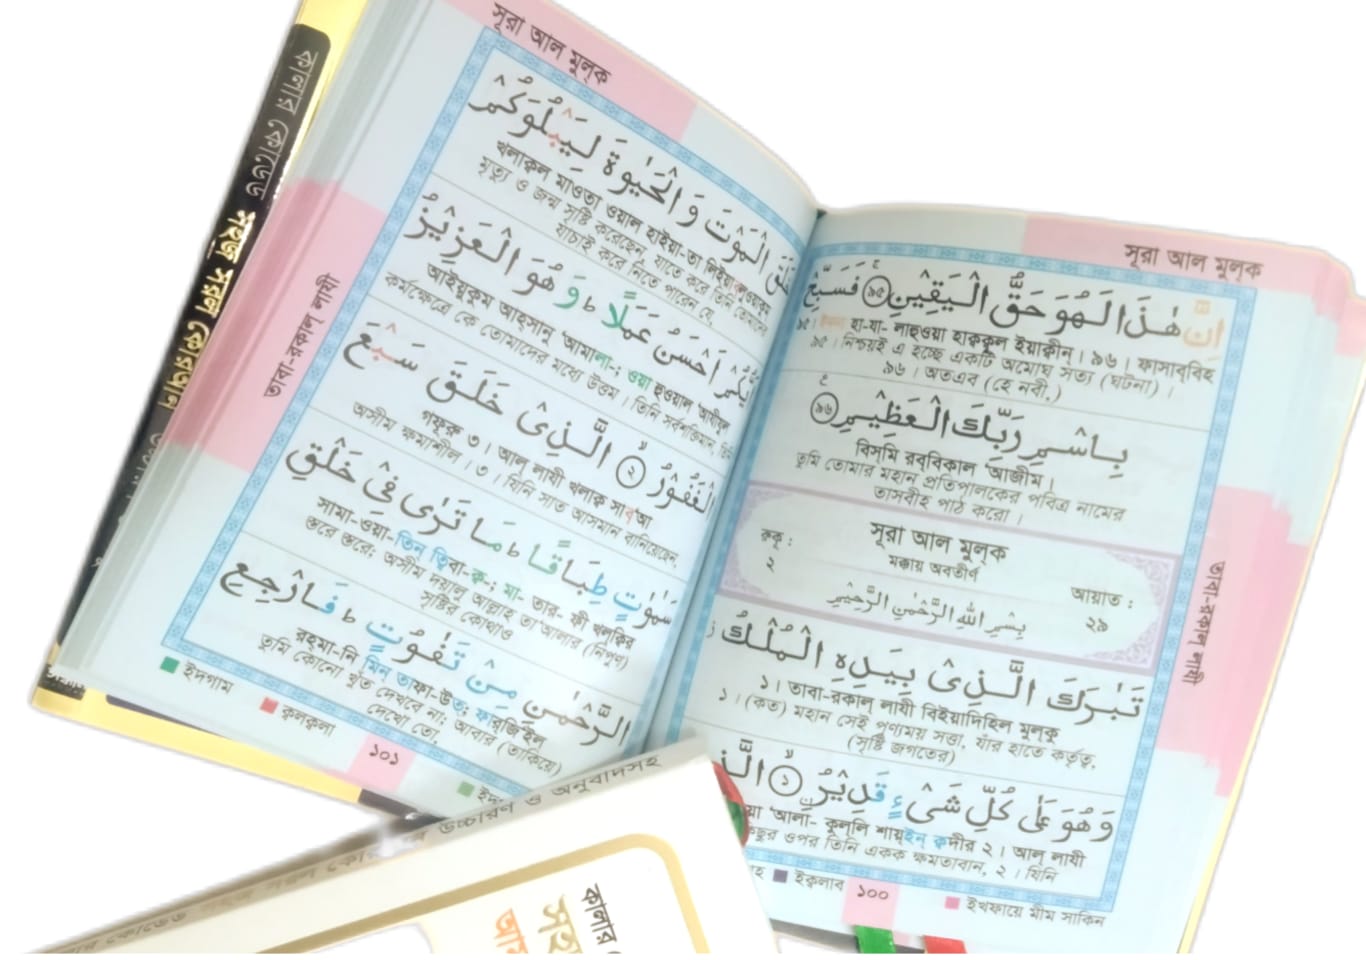 সূরা আল মুল্‌ক
اِنَّ هٰذَا لَهُوَ حَقُّ الْيَقِيْنِ ۹۵ فَسَبِّحْ
৯৫। হা-যা- লাহুওয়া হাক্বকুল ইয়াক্বীন। ৯৬। ফাসাব্‌বিহ
৯৫। নিশ্চয়ই এ হচ্ছে একটি অমোঘ সত্য (ঘটনা)।
৯৬। অতএব (হে নবী,)
بِاسْمِ رَبِّكَ الْعَظِيْمِ ۹۶
বিসমি রব্‌বিকাল ‘আজীম।
তুমি তোমার মহান প্রতিপালকের পবিত্র নামের
তাসবীহ পাঠ করো।
রুকূ :
২
সূরা আল মুল্‌ক
মক্কায় অবতীর্ণ
আয়াত :
২৯
بِسْمِ اللّٰهِ الرَّحْمٰنِ الرَّحِيْمِ
تَبٰرَكَ الَّذِىْ بِيَدِهِ الْمُلْكُ
১। তাবা-রকাল্‌ লাযী বিইয়াদিহিল মুল্‌কু
১। (কত) মহান সেই পুণ্যময় সত্তা, যাঁর হাতে কর্তৃত্ব,
(সৃষ্টি জগতের)
وَهُوَ عَلٰى كُلِّ شَىْءٍ قَدِيْرُ ۱ الَّذ
য়া ‘আলা- কুল্‌লি শায়ইন্‌ ক্বদীর ২। আল্‌ লাযী
ওপর তিনি একক ক্ষমতাবান, ২। যিনি
ইক্বলাব
১০০
ইখফায়ে মীম সাকিন
তাবা-রকাল্‌ লাযী
সূরা আল মুল্‌ক
خَلَقَ الْمَوْتَ وَالْحَيٰوةَ لِيَبْلُوَكُمْ
খলাক্বল মাওতা ওয়াল হাইয়া-তা লিইয়াব্‌লুওয়াকুম
মৃত্যু ও জন্ম সৃষ্টি করেছেন, যাতে করে তিনি তোমাদের
যাচাই করে নিতে পারেন যে,
اَيُّكُمْ اَحْسَنُ عَمَلًا ط وَهُوَ الْعَزِيْزُ
আইয়ুকুম আহসানু ‘আমালা-; ওয়া হুওয়াল ‘আযীযুল
কর্মক্ষেত্রে কে তোমাদের মধ্যে উত্তম। তিনি সর্বশক্তিমান,
الْغَفُوْرُ ۲ الَّذِىْ خَلَقَ سَبْعَ
গফূরু ৩। আল্‌ লাযী খলাক্ব সাব্‘আ
অসীম ক্ষমাশীল। ৩। যিনি সাত আসমান বানিয়েছেন,
سَمٰوٰتٍ طِبَاقًا ط مَا تَرٰى فِىْ خَلْقِ
সামা-ওয়া-তিন ত্বিবা-ক্ব-; মা- তার- ফী খল্‌ক্বির
স্তরে স্তরে; অসীম দয়ালু আল্লাহ তা‘আলার (নিপুণ)
সৃষ্টির কোথাও
الرَّحْمٰنِ مِنْ تَفٰوُتٍ ط فَارْجِعِ
রহমা-নি মিন তাফা-উত; ফারজি‘ইল
তুমি কোনো খুঁত দেখবে না; আবার (তাকিয়ে)
দেখো তো,
ইদগাম
ক্বলক্বলা
১০১
তাবা-রকাল্‌ লাযী
কালার কোডেড সহজ সরল কোরআন
উচ্চারণ ও অনুবাদসহ
কালার